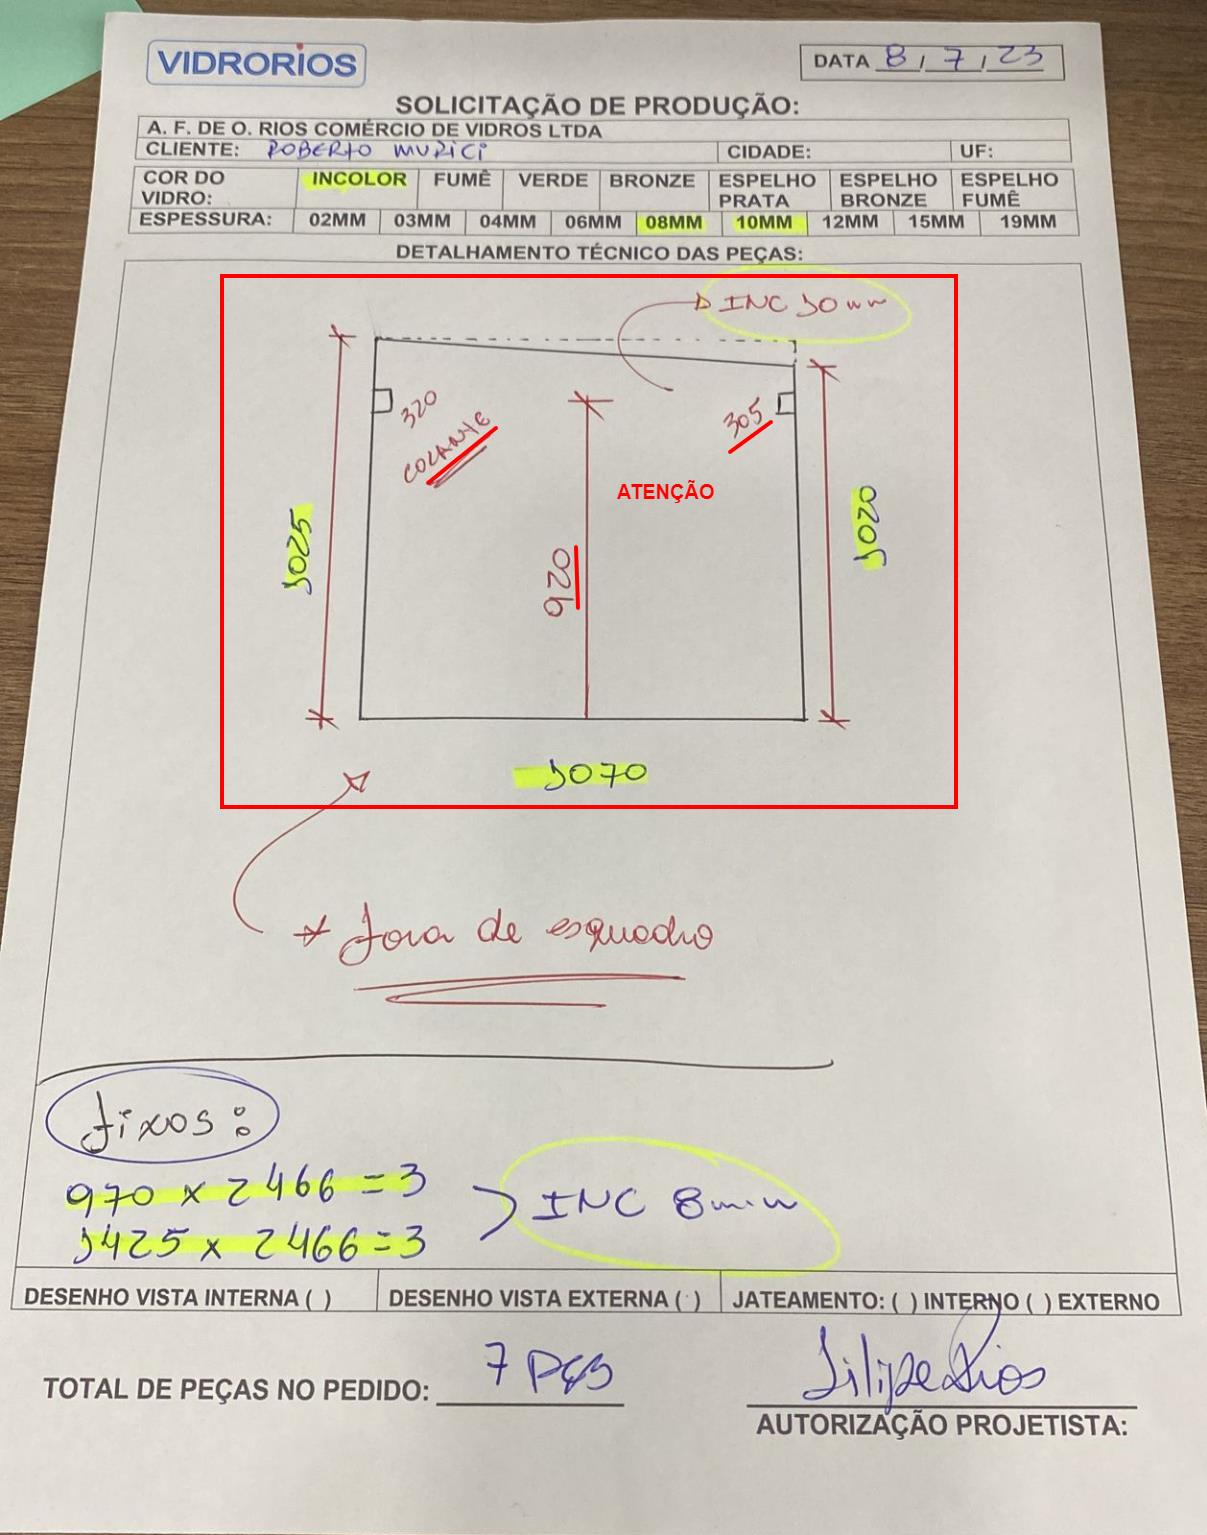 VIDRORIOS
DATA 8 / 7 / 23
SOLICITAÇÃO DE PRODUÇÃO:
A. F. DE O. RIOS COMÉRCIO DE VIDROS LTDA
CLIENTE: ROBERTO MURICI CIDADE: UF:
COR DO VIDRO: INCOLOR FUMÊ VERDE BRONZE ESPELHO PRATA ESPELHO BRONZE ESPELHO FUMÊ
ESPESSURA: 02MM 03MM 04MM 06MM 08MM 10MM 12MM 15MM 19MM
DETALHAMENTO TÉCNICO DAS PEÇAS:
INC 10mm
320
COLANTE
305
ATENÇÃO
1025
920
1020
1070
* fora de esquadro
fixos:
970 x 2466 = 3
1425 x 2466 = 3
INC 8mm
DESENHO VISTA INTERNA ( ) DESENHO VISTA EXTERNA ( ) JATEAMENTO: ( ) INTERNO ( ) EXTERNO
TOTAL DE PEÇAS NO PEDIDO: 7 PÇS
Filipe Rios
AUTORIZAÇÃO PROJETISTA: